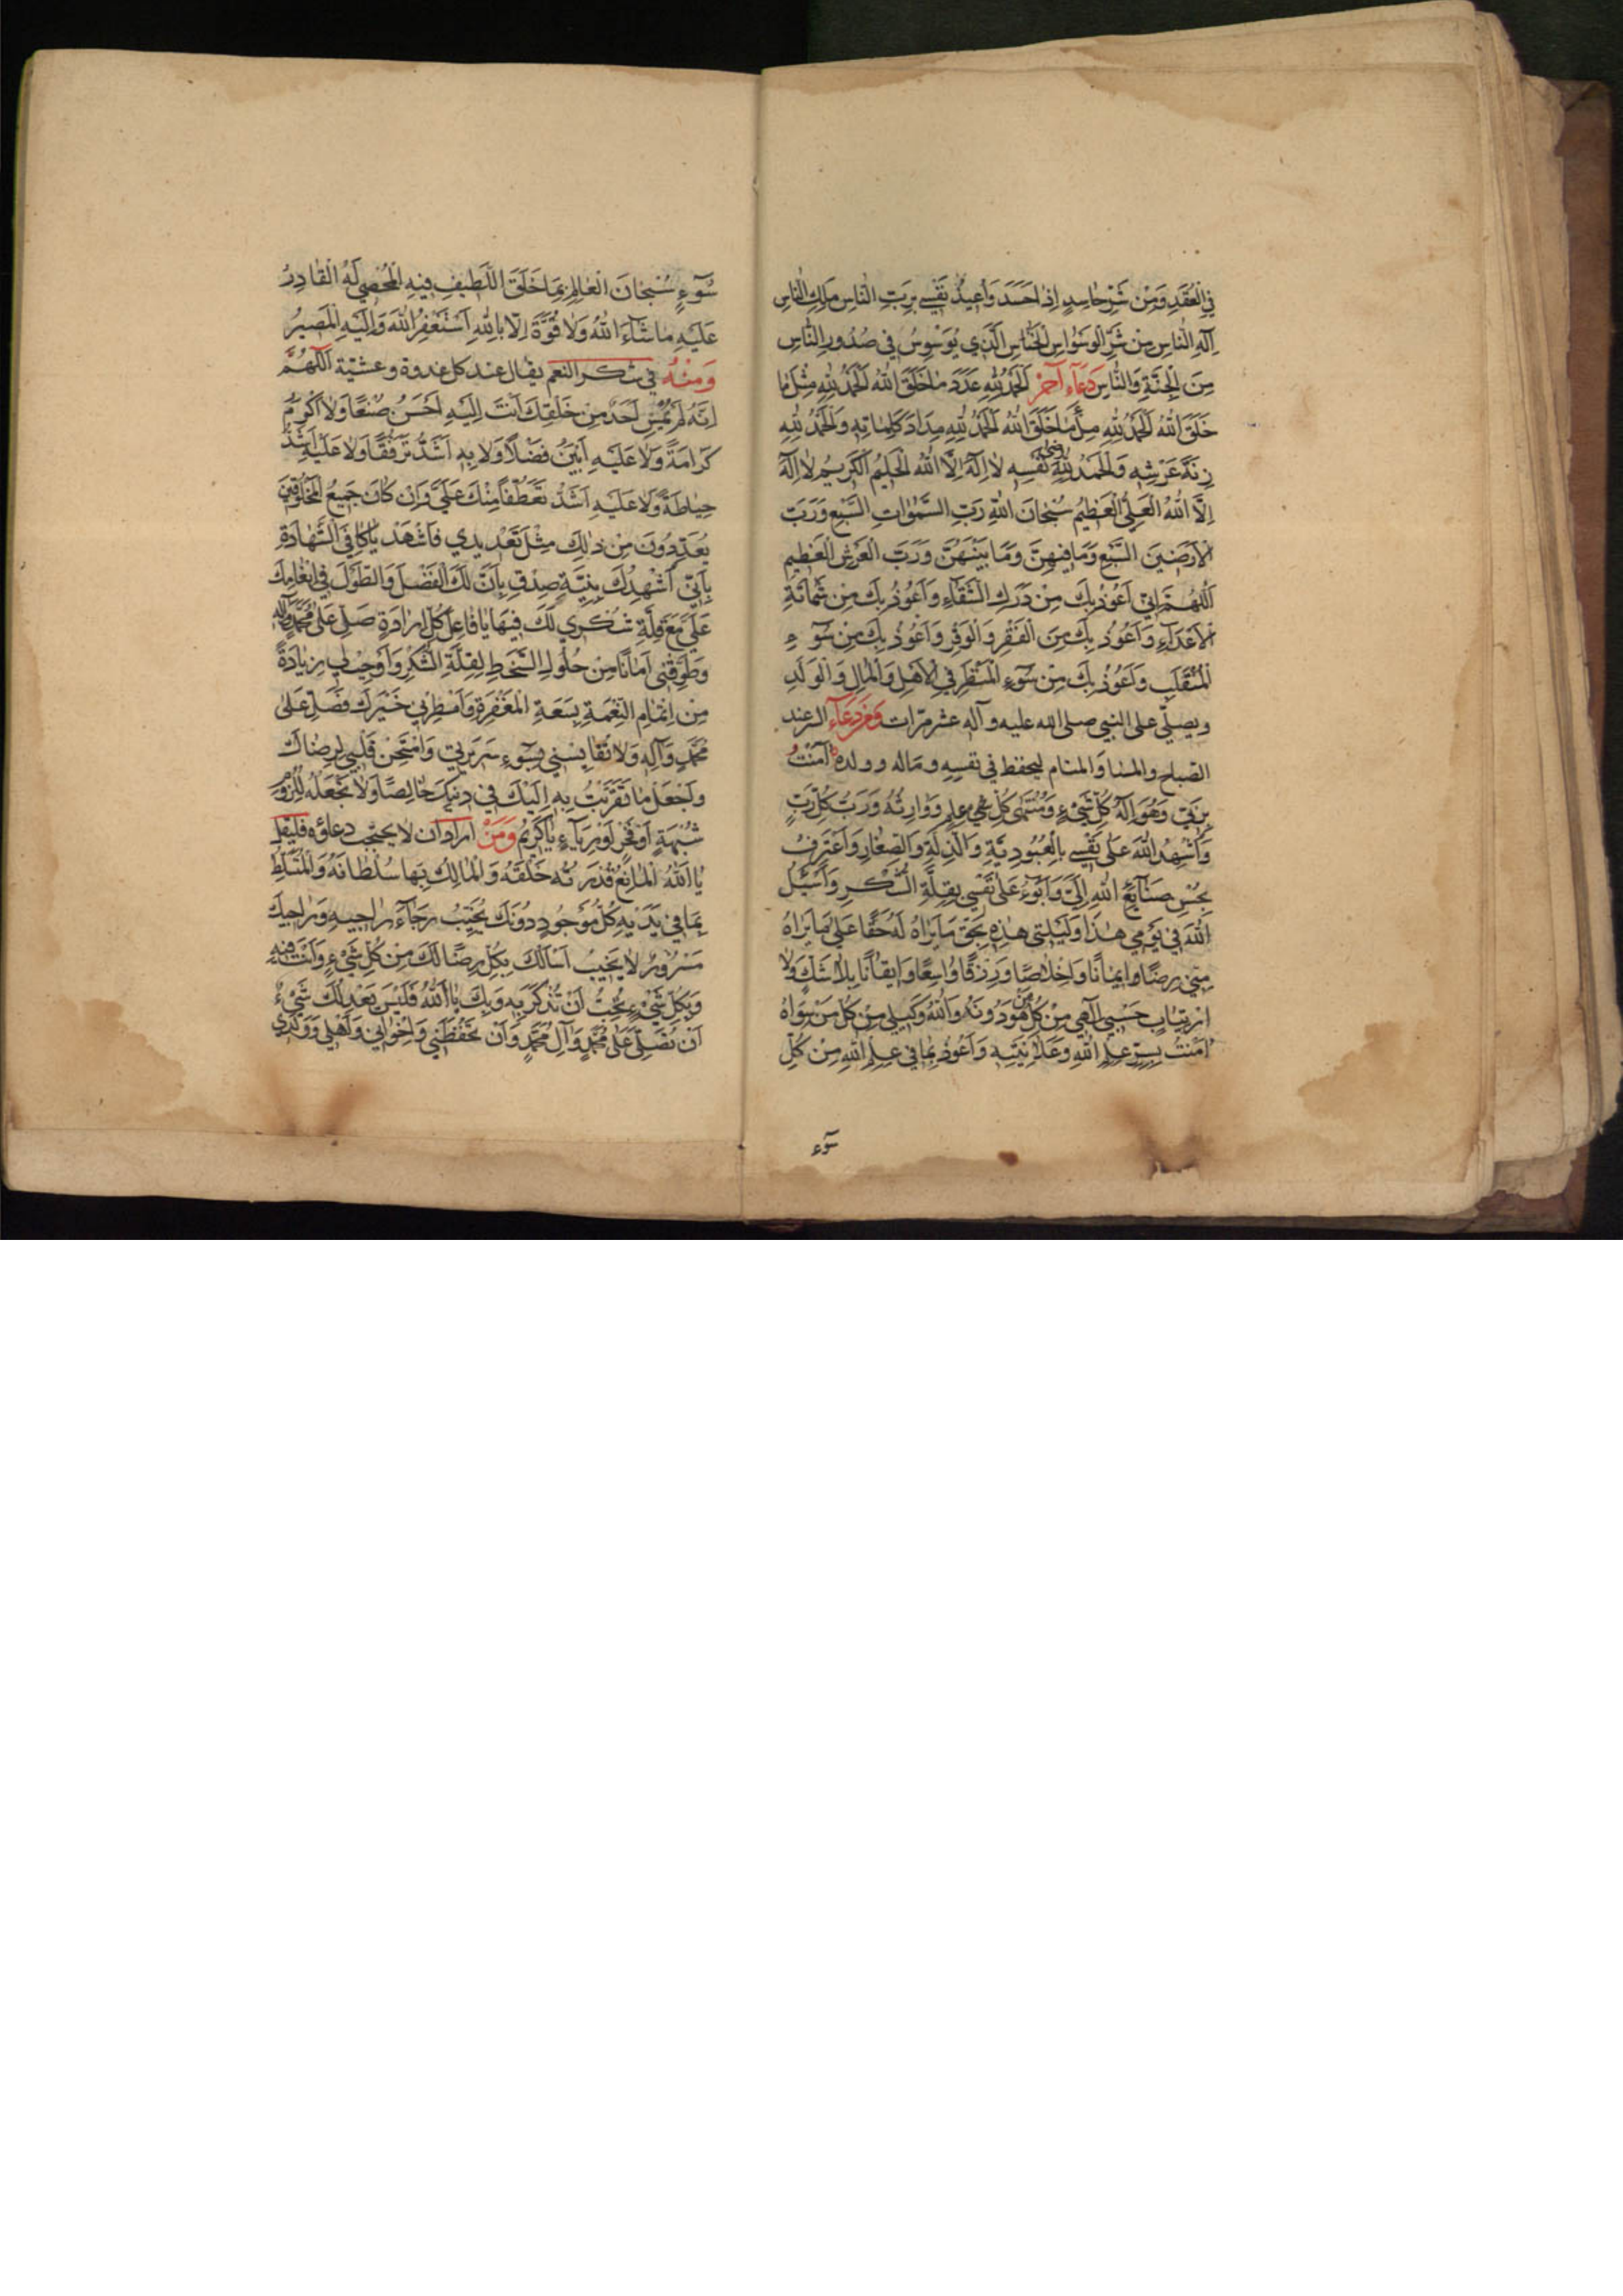 في العُقَدِ وَمِنْ شَرِّ حاسِدٍ اِذا حَسَدَ وَاُعيذُ نَفْسي بِرَبِّ النّاسِ مَلِكِ النّاسِ
اِلهِ النّاسِ مِنْ شَرِّ الوَسْواسِ الخَنّاسِ الَّذي يُوَسْوِسُ في صُدُورِ النّاسِ
مِنَ الْجِنَّةِ وَالنّاسِ دُعَآء آخر اَلْحَمْدُ لِلّهِ عَدَدَ ما خَلَقَ اللهُ اَلْحَمْدُ لِلّهِ مِثْلَ ما
خَلَقَ اللهُ اَلْحَمْدُ لِلّهِ مِلْءَ ما خَلَقَ اللهُ اَلْحَمْدُ لِلّهِ مِدادَ كَلِماتِهِ وَالْحَمْدُ لِلّهِ
زِنَةَ عَرْشِهِ وَالْحَمْدُ لِلّهِ رضى نَفْسِهِ لا اِلهَ اِلَّا اللهُ الْحَليمُ الْكَريمُ لا اِلهَ
اِلَّا اللهُ الْعَلِيُّ الْعَظيمُ سُبْحانَ اللهِ رَبِّ السَّمواتِ السَّبْعِ وَرَبِّ
الْاَرَضينَ السَّبْعِ وَما فيهِنَّ وَما بَيْنَهُنَّ وَرَبِّ الْعَرْشِ الْعَظيمِ
اَللّهُمَّ اِنّي اَعُوذُ بِكَ مِنْ دَرَكِ الشَّقاءِ وَاَعُوذُ بِكَ مِنْ شَماتَةِ
الْاَعْدآءِ وَاَعُوذُ بِكَ مِنَ الْفَقْرِ وَالْوَقْرِ وَاَعُوذُ بِكَ مِنْ سُوٓءِ
الْمُنْقَلَبِ وَاَعُوذُ بِكَ مِنْ سُوٓءِ الْمَنْظَرِ فِي الْاَهْلِ وَالْمالِ وَالْوَلَدِ
ويصلّي على النبي صلى الله عليه وآله عشر مرّات وَمن دُعَآء السر عند
الصباح والمسا والمنام ليحفظ في نفسه وماله وولده آمَنْتُ
بِرَبّي وَهُوَ اِلهُ كُلِّ شَيْءٍ وَمُنْتَهى كُلِّ علِمٍ وَوارِثُهُ وَرَبُّ كُلِّ رَبٍّ
وَاُشْهِدُ اللهَ عَلى نَفْسي بِالْعُبُودِيَّةِ وَالذِّلَّةِ وَالصِّغارِ وَاَعْتَرِفُ
بِحُسْنِ صَنآئِعِ اللهِ اِلَيَّ وَاَبُوٓءُ عَلى نَفْسي بِقِلَّةِ الشُّكْرِ وَاَسْئَلُ
اللهَ في يَوْمي هذا وَلَيْلَتي هذِهِ بِحَقِّ ما يَراهُ لَهُ حَقًّا عَلى ما يَراهُ
مِنّي رِضًا وَايمانًا وَاِخْلاصًا وَرِزْقًا واسِعًا وَايقانًا بِلا شَكٍّ وَلا
ارْتِيابٍ حَسْبي اِلهي مِنْ كُلِّ مَن هُوَ دُونَهُ وَاللهُ وَكيلي مِنْ كُلِّ مَنْ سِواهُ
آمَنْتُ بِسِرِّ عِلْمِ اللهِ وَعَلانِيَتِهِ وَاَعُوذُ بِما في عِلْمِ اللهِ مِنْ كُلِّ
سوٓء
سُوٓءٍ سُبْحانَ الْعالِمِ بِما خَلَقَ اللَّطيفِ فيهِ الْمُحْصي لَهُ الْقادِرِ
عَلَيْهِ ما شآءَ اللهُ وَلا قُوَّةَ اِلّا بِاللهِ اَسْتَغْفِرُ اللهَ وَاِلَيْهِ الْمَصيرُ
وَمنْهُ في شكر النعم يقال عند كل غدوة وعشيّة اَللّهُمَّ
اِنَّهُ لَمْ يُمْسِ اَحَدٌ مِنْ خَلْقِكَ اَنْتَ اِلَيْهِ اَحْسَنُ صُنْعًا وَلا اَكْرَمُ
كَرامَةً وَلا عَلَيْهِ اَبْيَنُ فَضْلًا وَلا بِهِ اَشَدُّ تَرَفُّقًا وَلا عَلَيْهِ اَشَدُّ
حِياطَةً وَلا عَلَيْهِ اَشَدُّ تَعَطُّفًا مِنْكَ عَلَيَّ وَاِنْ كانَ جَميعُ الْمَخْلُوقينَ
يُعَدِّدُونَ مِنْ ذلِكَ مِثْلَ تَعْديدي فَاشْهَدْ يا كافِيَ الشَّهادَةِ
بِاَنّي اُشْهِدُكَ بِنِيَّةِ صِدْقٍ بِاَنَّ لَكَ الْفَضْلَ وَالطَّوْلَ في اِنْعامِكَ
عَلَيَّ مَعَ قِلَّةِ شُكْري لَكَ فيها يا فاعِلَ كُلِّ اِرادَةٍ صَلِّ عَلى مُحَمَّدٍ وَآلِهِ
وَطَوِّقْني اَمانًا مِنْ حُلُولِ السَّخَطِ لِقِلَّةِ الشُّكْرِ وَاَوْجِبْ لي زِيادَةً
مِنْ اِتْمامِ النِّعْمَةِ بِسَعَةِ الْمَغْفِرَةِ وَاَمْطِرْني خَيْرَكَ فَصَلِّ عَلى
مُحَمَّدٍ وَآلِهِ وَلا تُقايِسْني بِسُوٓءِ سَريرَتي وَامْتَحِنْ قَلْبي لِرِضاكَ
وَاجْعَلْ ما تَقَرَّبْتُ بِهِ اِلَيْكَ في دينِكَ خالِصًا وَلا تَجْعَلْهُ لِلُزُومِ
شُبْهَةٍ اَوْ فَخْرٍ اَوْ رِيآءٍ يا كَريمُ وَمَنْ اراد ان لا يحجب دعاؤه فليقل
يا اَللهُ الْمانِعُ قُدْرَتُهُ خَلْقَهُ وَالْمالِكُ بِها سُلْطانَهُ وَالْمُتَسَلِّطُ
بِما في يَدَيْهِ كُلُّ مَوْجُودٍ دُونَكَ يُخَيِّبُ رَجآءَ راجيهِ وَراجيكَ
مَسْرُورٌ لا يَخيبُ اَسْاَلُكَ بِكُلِّ رِضًا لَكَ مِنْ كُلِّ شَيْءٍ وَاَنْتَ فيهِ
وَبِكُلِّ شَيْءٍ تُحِبُّ اَنْ تُذْكَرَ بِهِ وَبِكَ يا اَللهُ فَلَيْسَ يَعْدِلُكَ شَيْءٌ
اَنْ تُصَلِّيَ عَلى مُحَمَّدٍ وَآلِ مُحَمَّدٍ وَاَنْ تَحْفَظَني وَاِخْواني وَاَهْلي وَوَلَدي